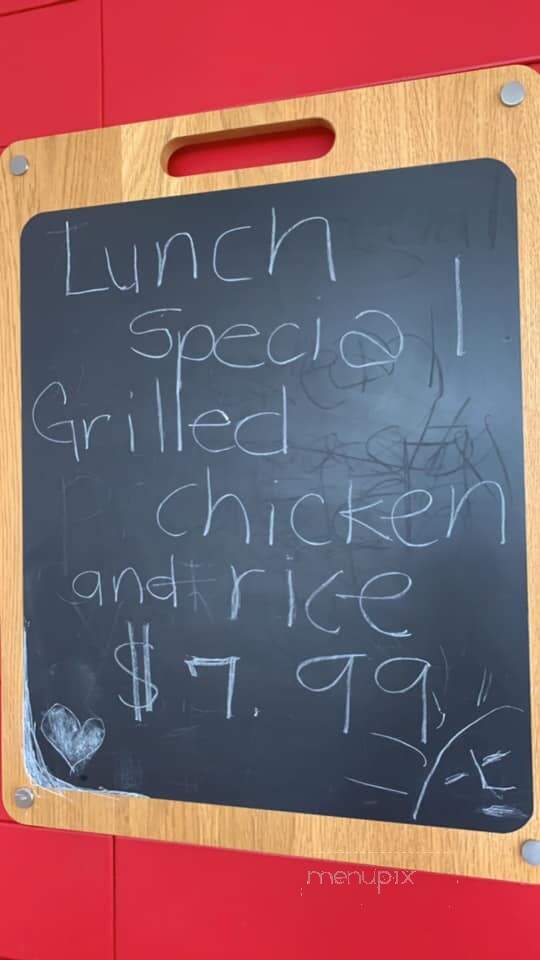 Lunch
Special
Grilled
chicken
and rice
$7.99
menupix